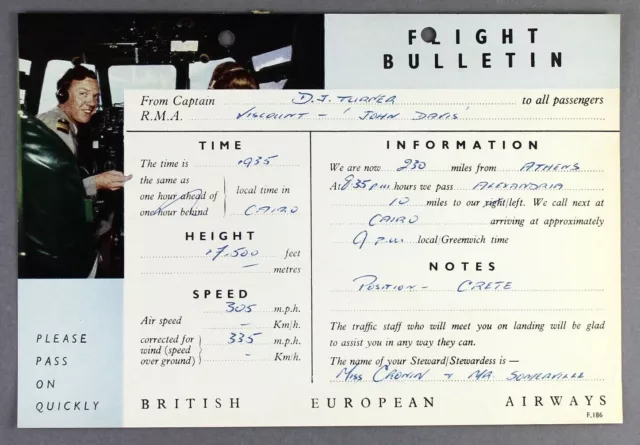 FLIGHT
BULLETIN
From Captain D.J. TURNER to all passengers
R.M.A. VISCOUNT - 'JOHN DAVIS'
TIME
The time is 1935
the same as
one hour ahead of
one hour behind
local time in
CAIRO
HEIGHT
17,500 feet
- metres
SPEED
305 m.p.h.
Air speed - Km/h.
corrected for 335 m.p.h.
wind (speed
over ground) - Km/h.
INFORMATION
We are now 230 miles from ATHENS
At 8.35 p.m. hours we pass ALEXANDRIA
10 miles to our right/left. We call next at
CAIRO arriving at approximately
9 p.m. local/Greenwich time
NOTES
POSITION - CRETE
The traffic staff who will meet you on landing will be glad
to assist you in any way they can.
The name of your Steward/Stewardess is —
MISS CRONIN + MR SOMERVILLE
PLEASE
PASS
ON
QUICKLY
BRITISH EUROPEAN AIRWAYS
F.186